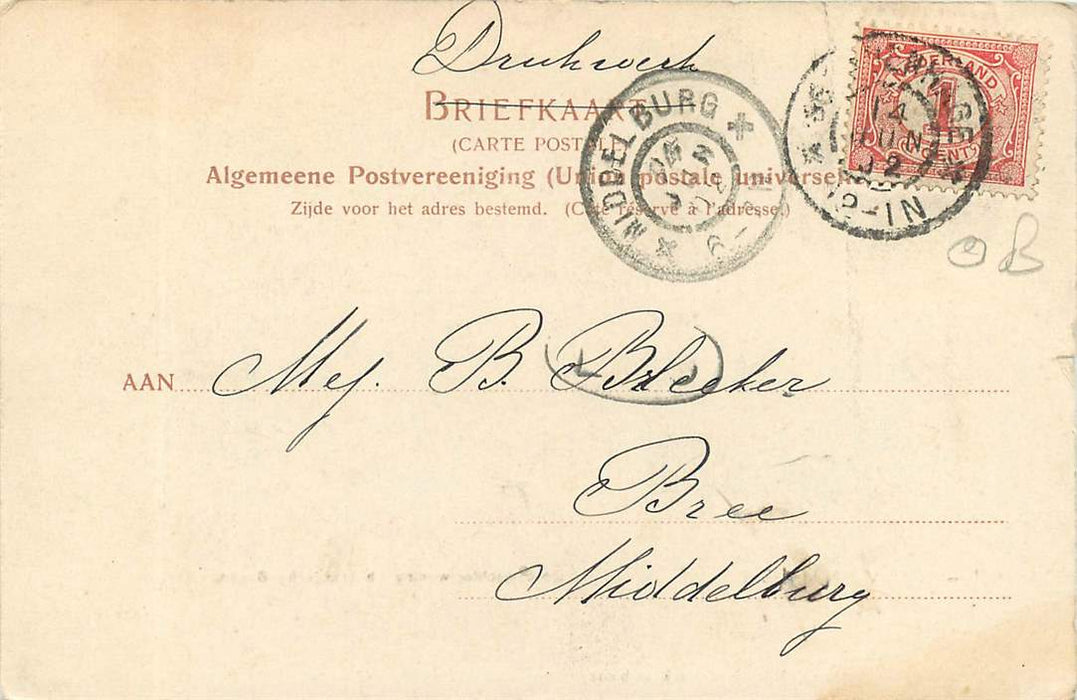 Drukwerk
BRIEFKAART
(CARTE POSTALE)
Algemeene Postvereeniging (Union postale universelle)
Zijde voor het adres bestemd. (Côté réservé à l'adresse.)
MIDDELBURG
NEDERLAND
1
CENT
14
JUN
12-1N
OB
AAN Mej. B. Bleeker
Bree
Middelburg